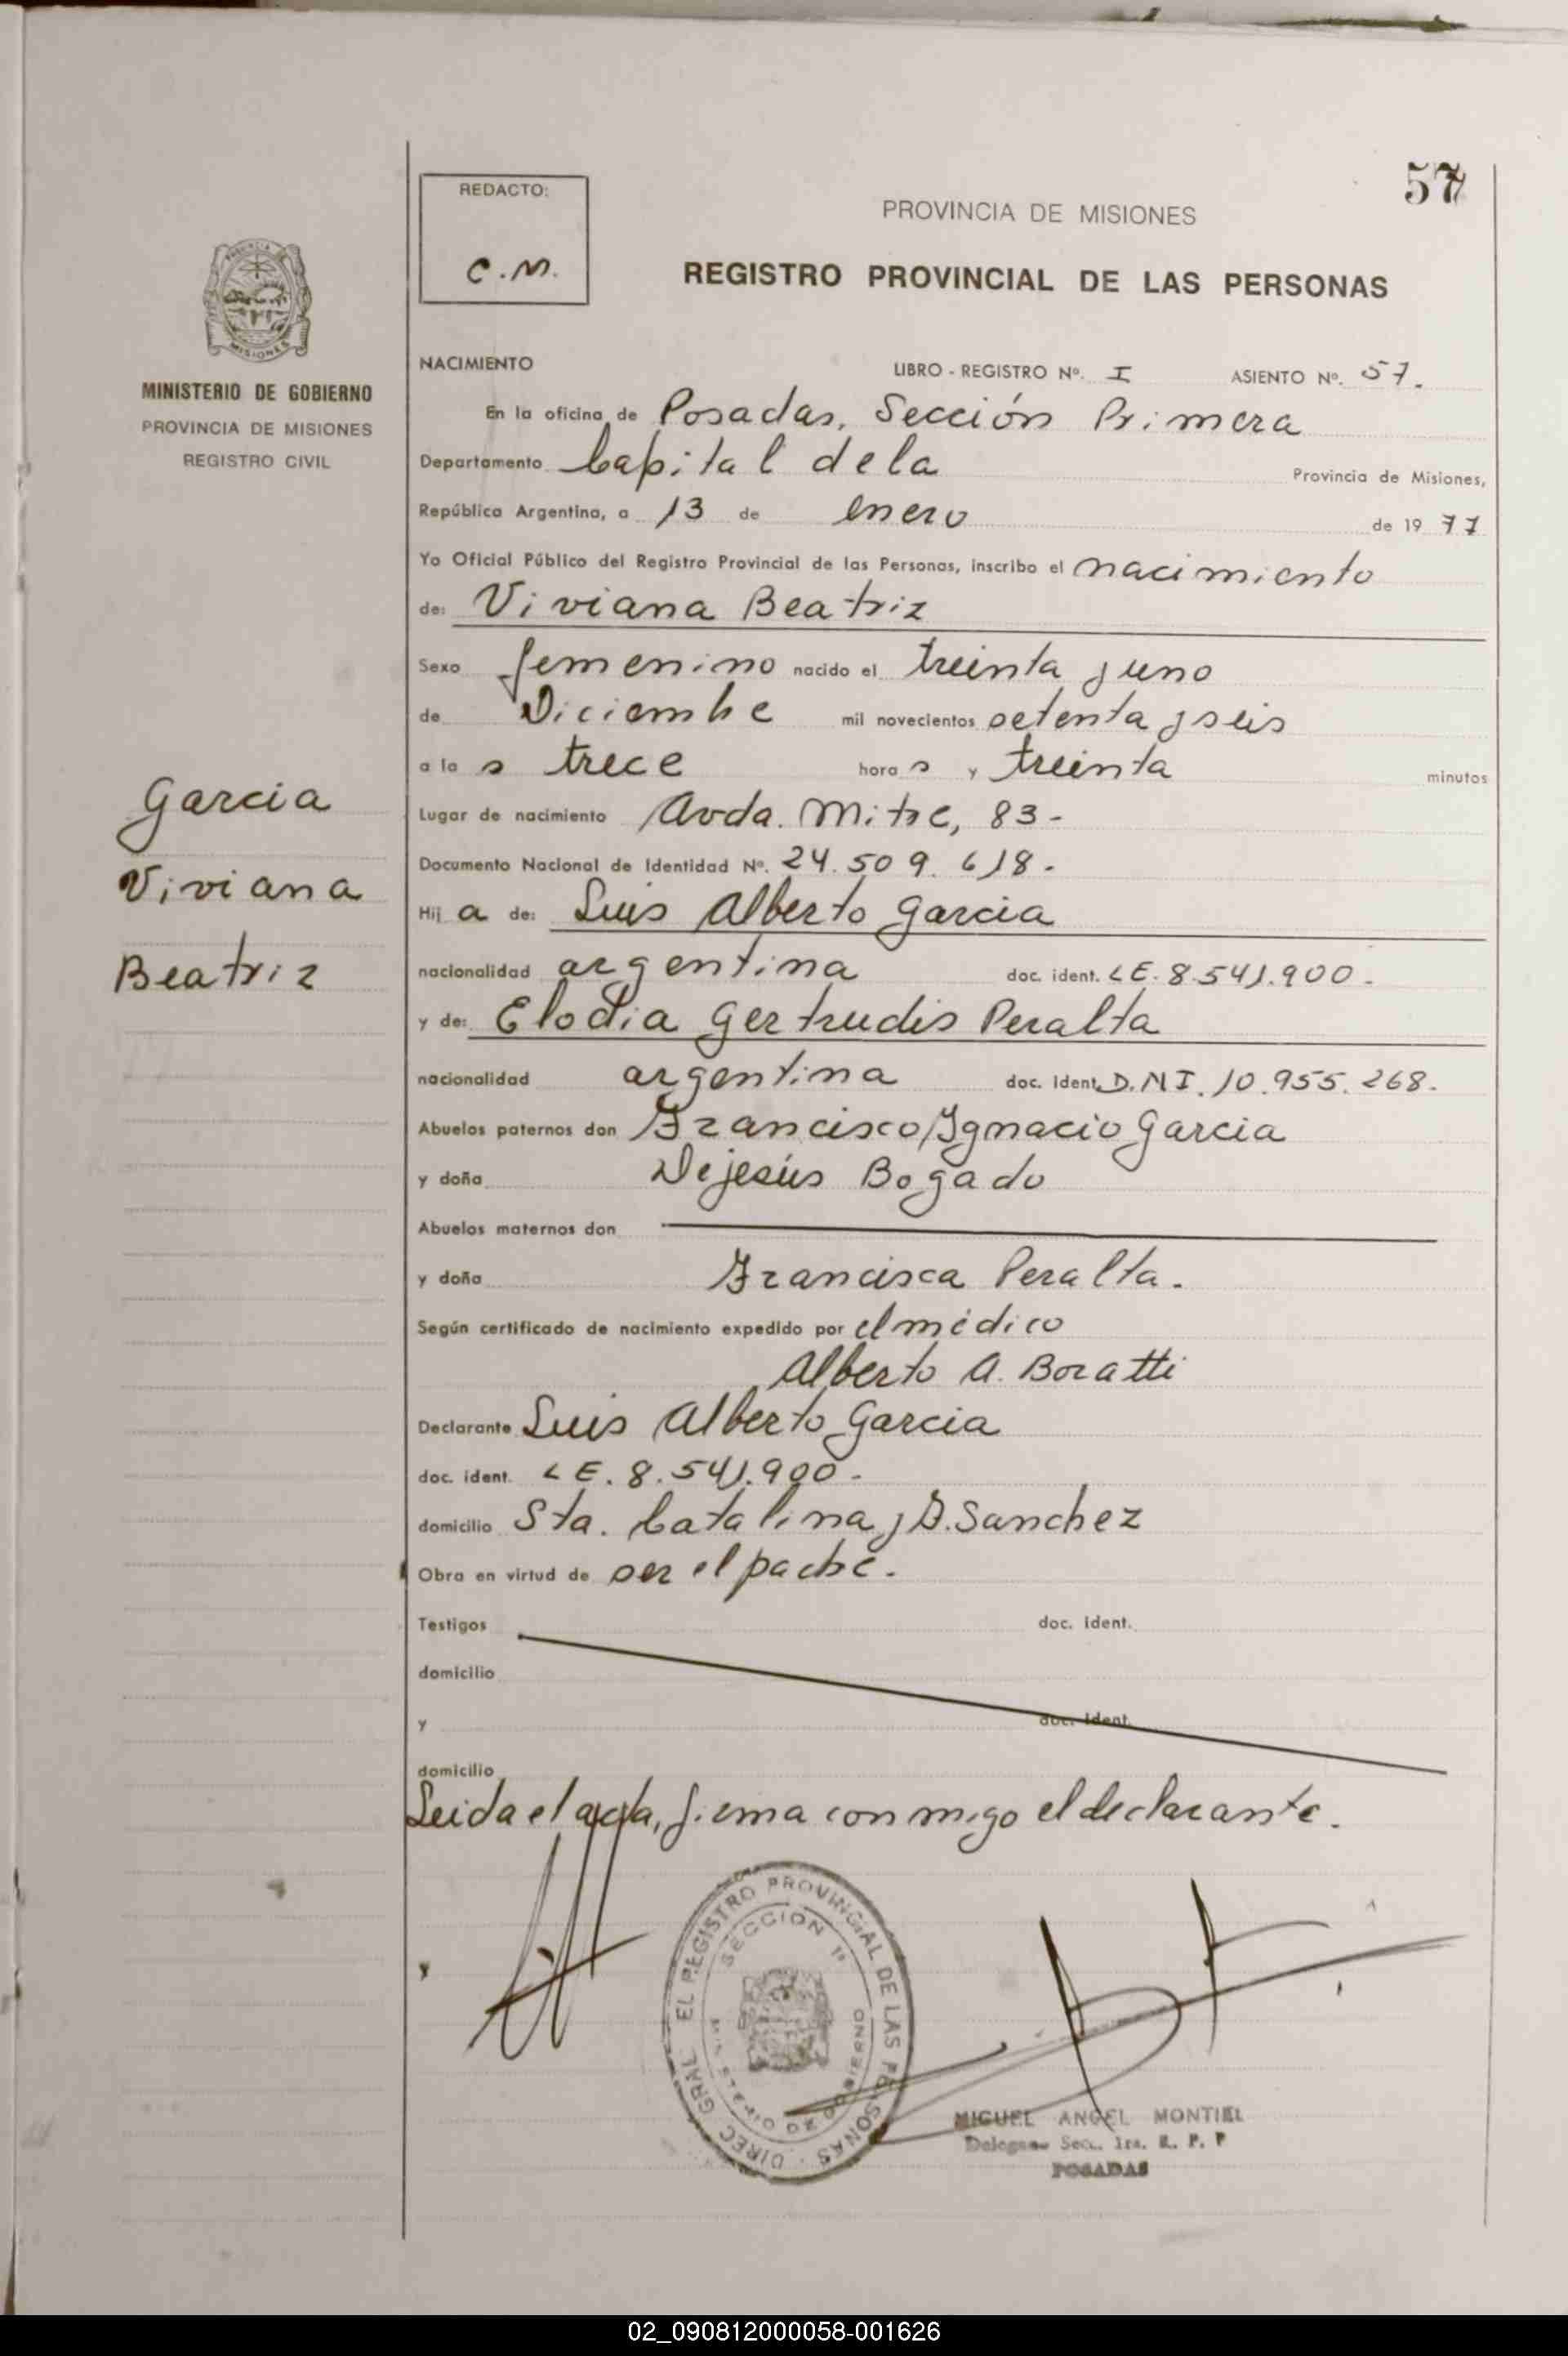 57
REDACTO:
C.M.
PROVINCIA DE MISIONES
REGISTRO PROVINCIAL DE LAS PERSONAS
MISIONES
MINISTERIO DE GOBIERNO
PROVINCIA DE MISIONES
REGISTRO CIVIL
NACIMIENTO LIBRO - REGISTRO Nº. I ASIENTO Nº. 57.
En la oficina de Posadas, Sección Primera
Departamento Capital de la Provincia de Misiones,
República Argentina, a 13 de enero de 19 77
Yo Oficial Público del Registro Provincial de las Personas, inscribo el nacimiento
de: Viviana Beatriz
Sexo femenino nacido el treinta y uno
de Diciembre mil novecientos setenta y seis
a la s trece hora s y treinta minutos
Garcia
Viviana
Beatriz
Lugar de nacimiento Avda. Mitre, 83-
Documento Nacional de Identidad Nº. 24.509.618.
Hij a de: Luis Alberto Garcia
nacionalidad argentina doc. ident. LE. 8.541.900.
y de: Elodia Gertrudis Peralta
nacionalidad argentina doc. ident. D.N.I. 10.955.268.
Abuelos paternos don Francisco Ignacio Garcia
y doña Dejesús Bogado
Abuelos maternos don
y doña Francisca Peralta.
Según certificado de nacimiento expedido por el médico
Alberto A. Boratti
Declarante Luis Alberto Garcia
doc. ident. LE. 8.541.900-
domicilio Sta. Catalina y D. Sanchez
Obra en virtud de ser el padre.
Testigos doc. ident.
domicilio
y doc. ident.
domicilio
Leida el acta, firma conmigo el declarante.
DIREC. GRAL. EL REGISTRO PROVINCIAL DE LAS PERSONAS
SECCION 1ª
MINISTERIO DE GOBIERNO
MIGUEL ANGEL MONTIEL
Delegado Secc. 1ra. R. P. P
POSADAS
02_090812000058-001626